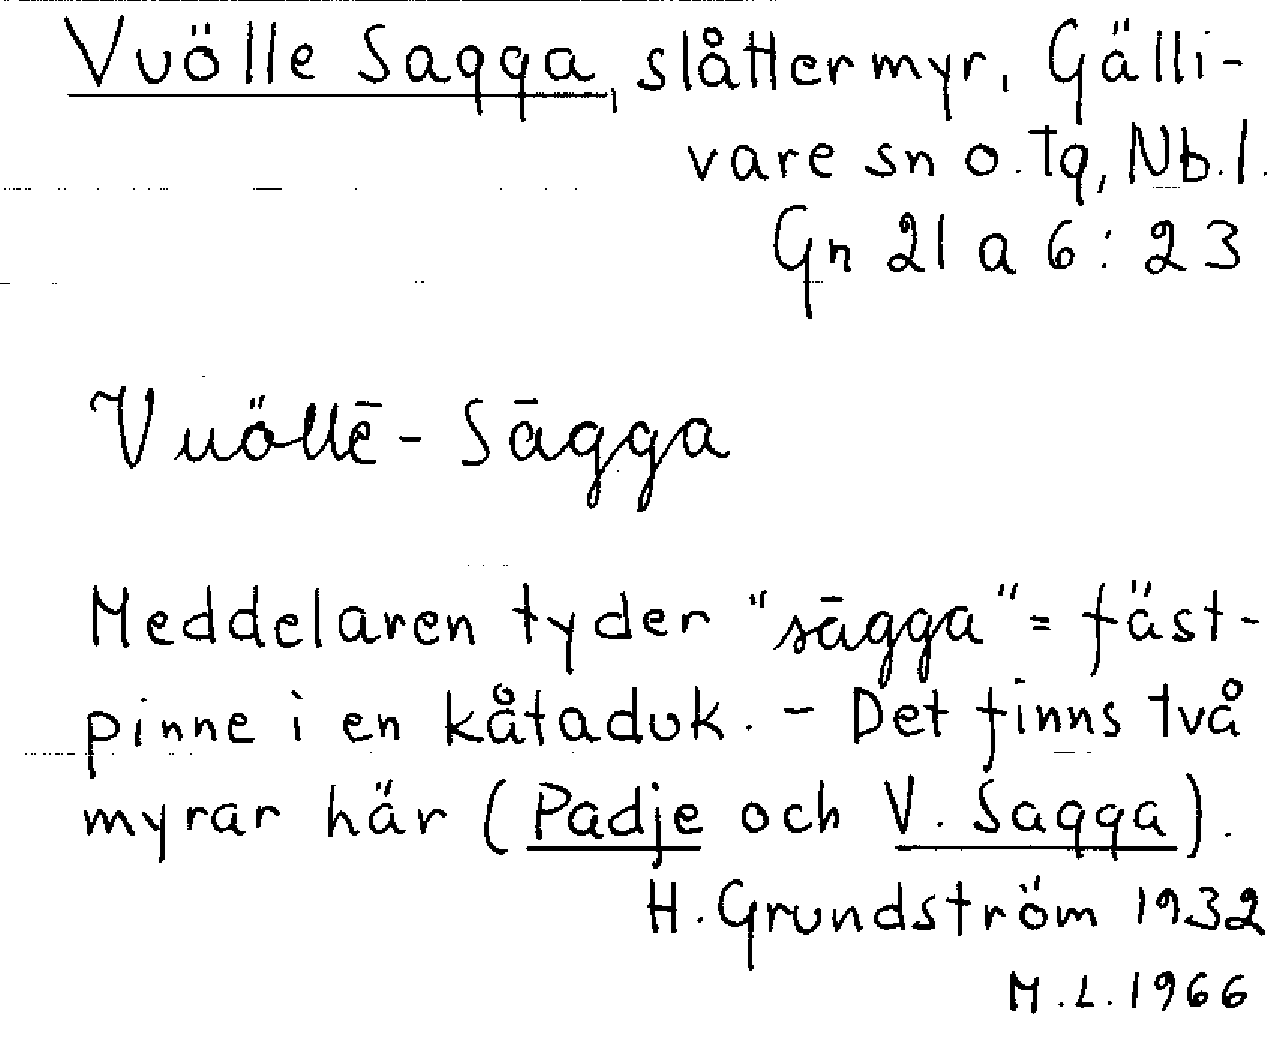 Vuölle Sagga, slåttermyr, Gälli-
vare sn o. tg, Nb. l.
Gn 21 a 6: 23
Vuöllē - Sāgga
Meddelaren tyder "sāgga" = fäst-
pinne i en kåtaduk. - Det finns två
myrar här (Padje och V. Sagga).
H. Grundström 1932
M.L. 1966